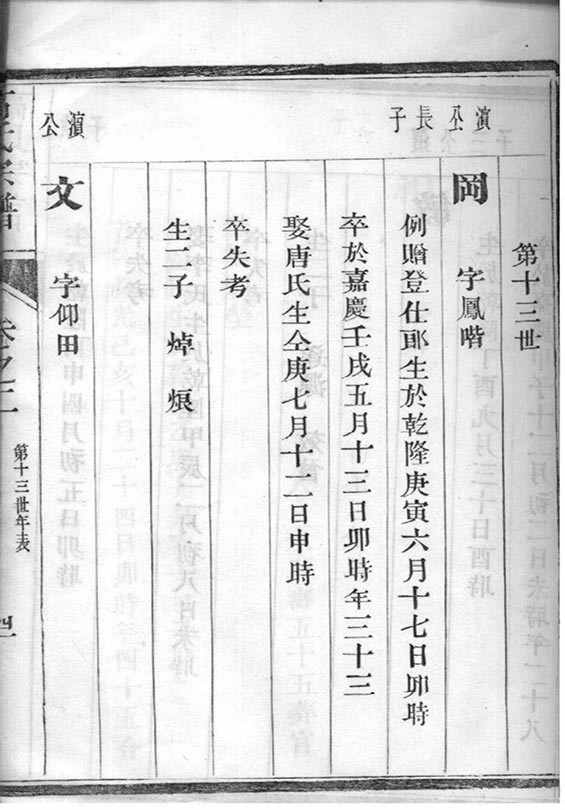 第十三世
濱公長子
岡 字鳳喈
例贈登仕郎生於乾隆庚寅六月十七日卯時
卒於嘉慶壬戌五月十三日卯時年三十三
娶唐氏生仝庚七月十二日申時
卒失考
生二子 焯 焮
濱公
文 字仰田
氏宗譜
卷之二
第十三世年表